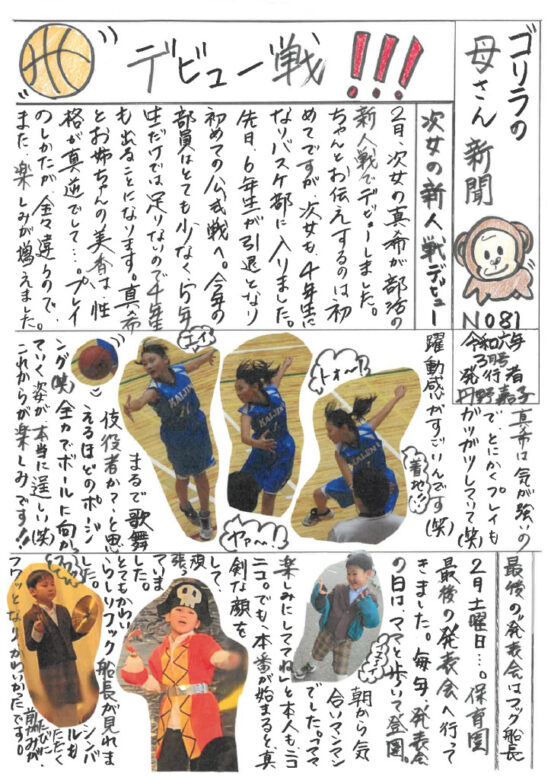 ゴリラの
母さん新聞
NO81
令和六年
3月号
発行者
デビュー戦!!!
次女の新人戦デビュー
2月、次女の真希が部活の
新人戦でデビューしました。
ちゃんとお伝えするのは初
めてですが、次女も、4年生に
なりバスケ部に入りました。
先日、6年生が引退となり
初めての公式戦へ。今年の
部員はとても少なく、5年
生だけでは足りないので4年生
も出ることになります。真希
とお姉ちゃんの美香は、性
格が真逆でして…。プレイ
のしかたが全々違うので、
また、楽しみが増えました。
真希は気が強いの
で、とにかくプレイも
ガツガツしていて(笑)
躍動感がすごいんです(笑)
トォ〜!
着地!!
ヤァ〜!
エイ
まるで歌舞
伎役者か?と思
えるほどのポージ
ング(笑)全力でボールに向かっ
ていく姿が本当に逞しい(笑)
これからが楽しみです!!
KALIEN
最後の発表会はフック船長
2月土曜日…。保育園
最後の発表会へ行って
きました。毎年、発表会
の日は、ママと歩いて登園。
朝から気
合いマンマン
でした。「ママ
楽しみにしててね」と本人も、ニコ
ニコ。でも、本番が始まると真
剣な顔を
して、頑
張って
いま
した。
とてもかわい
らしいフック船長が見れま
した。シンバ
ルもたたく
たびに
前がみが、
フワッとなりかわいかったです。